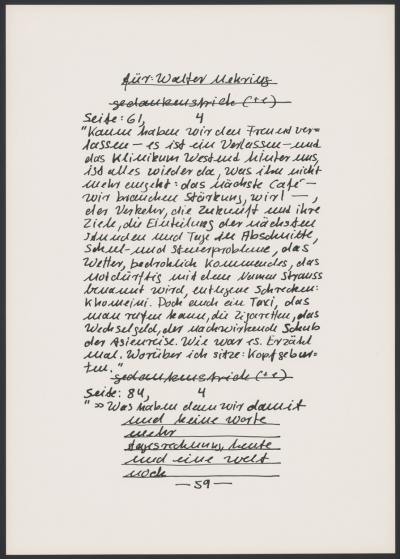 für: Walter Mehring
gedankenstrich (++)
Seite: 61, 4
"Kaum haben wir den Freund ver=
lassen — es ist ein Verlassen — und
das Klinikum Westend hinter uns,
ist alles wieder da, was ihn nicht
mehr angeht: das nächste Café —
wir brauchen Stärkung, wir! —,
der Verkehr, die Zukunft und ihre
Ziele, die Einteilung der nächsten
Stunden und Tage in Abschnitte,
Schul- und Steuerprobleme, das
Wetter, bedrohlich Kommendes, das
notdürftig mit dem Namen Strauss
benannt wird, entlegene Schrecken:
Khomeini. Doch auch ein Taxi, das
man rufen kann, die Zigaretten, das
Wechselgeld, der nachwirkende Schub
der Asienreise. Wie war es. Erzähl
mal. Worüber ich sitze: Kopfgebur=
ten."
gedankenstrich (++)
Seite: 84, 4
"» Was haben denn wir damit
und keine worte
mehr
tagesrechnung, heute
und eine welt
noch
— 59 —